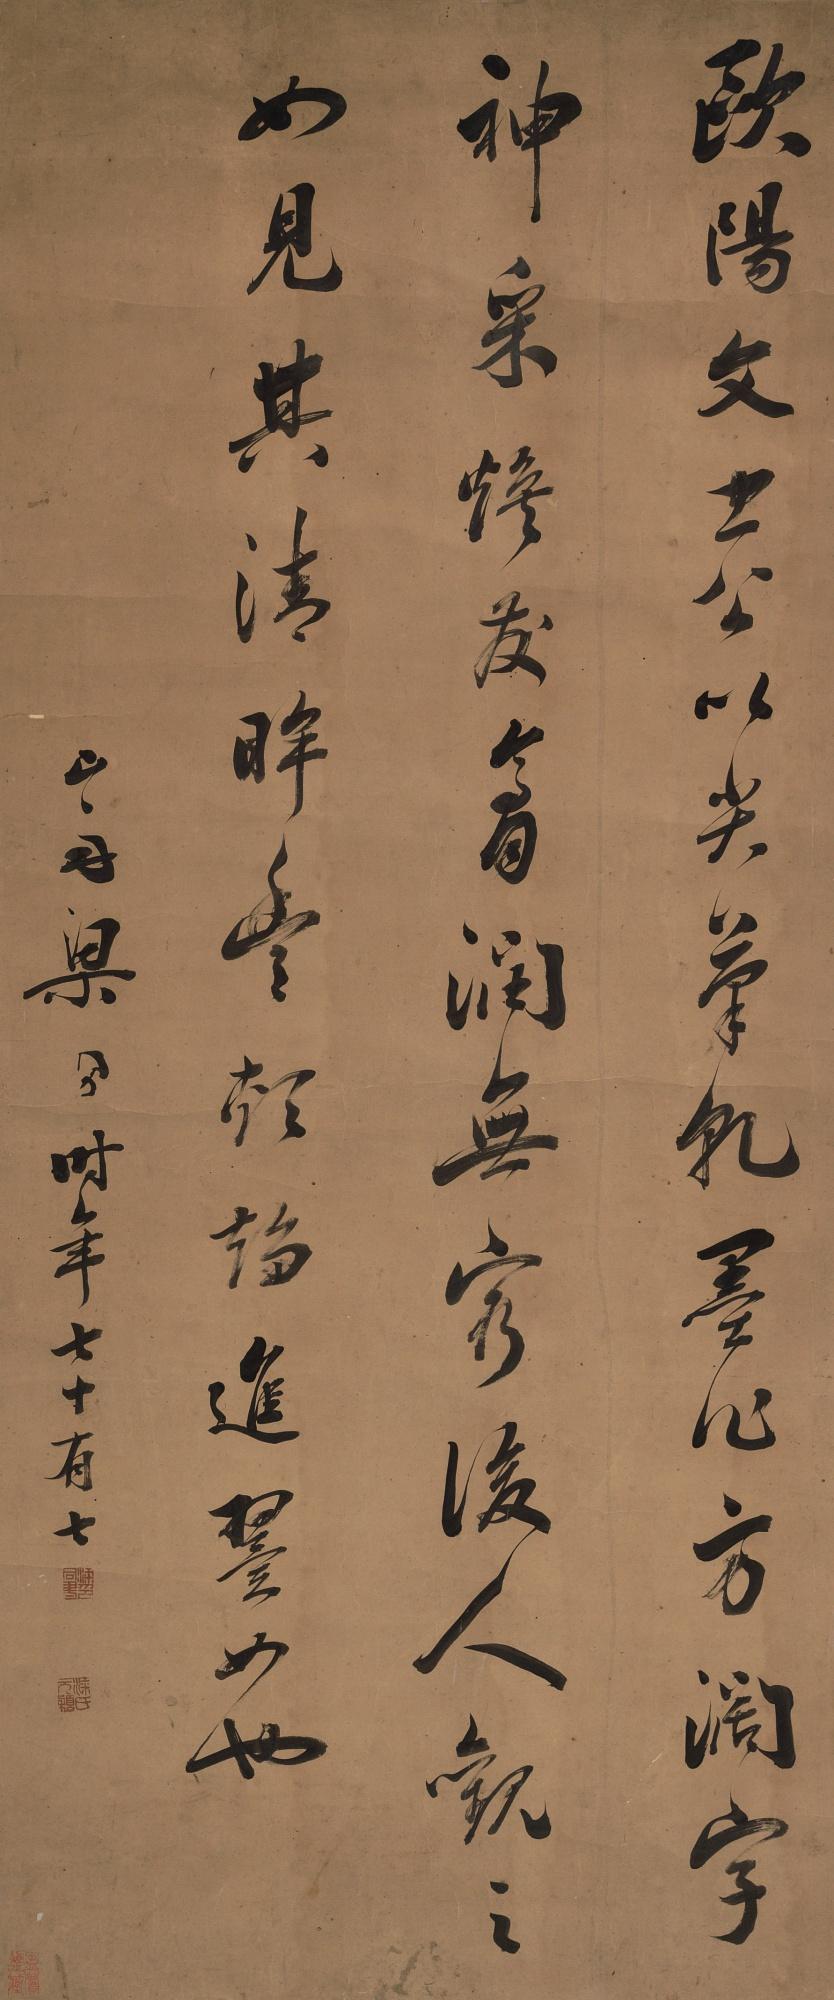 歐陽文忠公以尖筆乾墨作方濶字
神采煥發膏潤無窮後人觀之
如見其清眸豐頰趨進翼如也
山舟梁同書時年七十有七
梁同書印
梁氏元穎